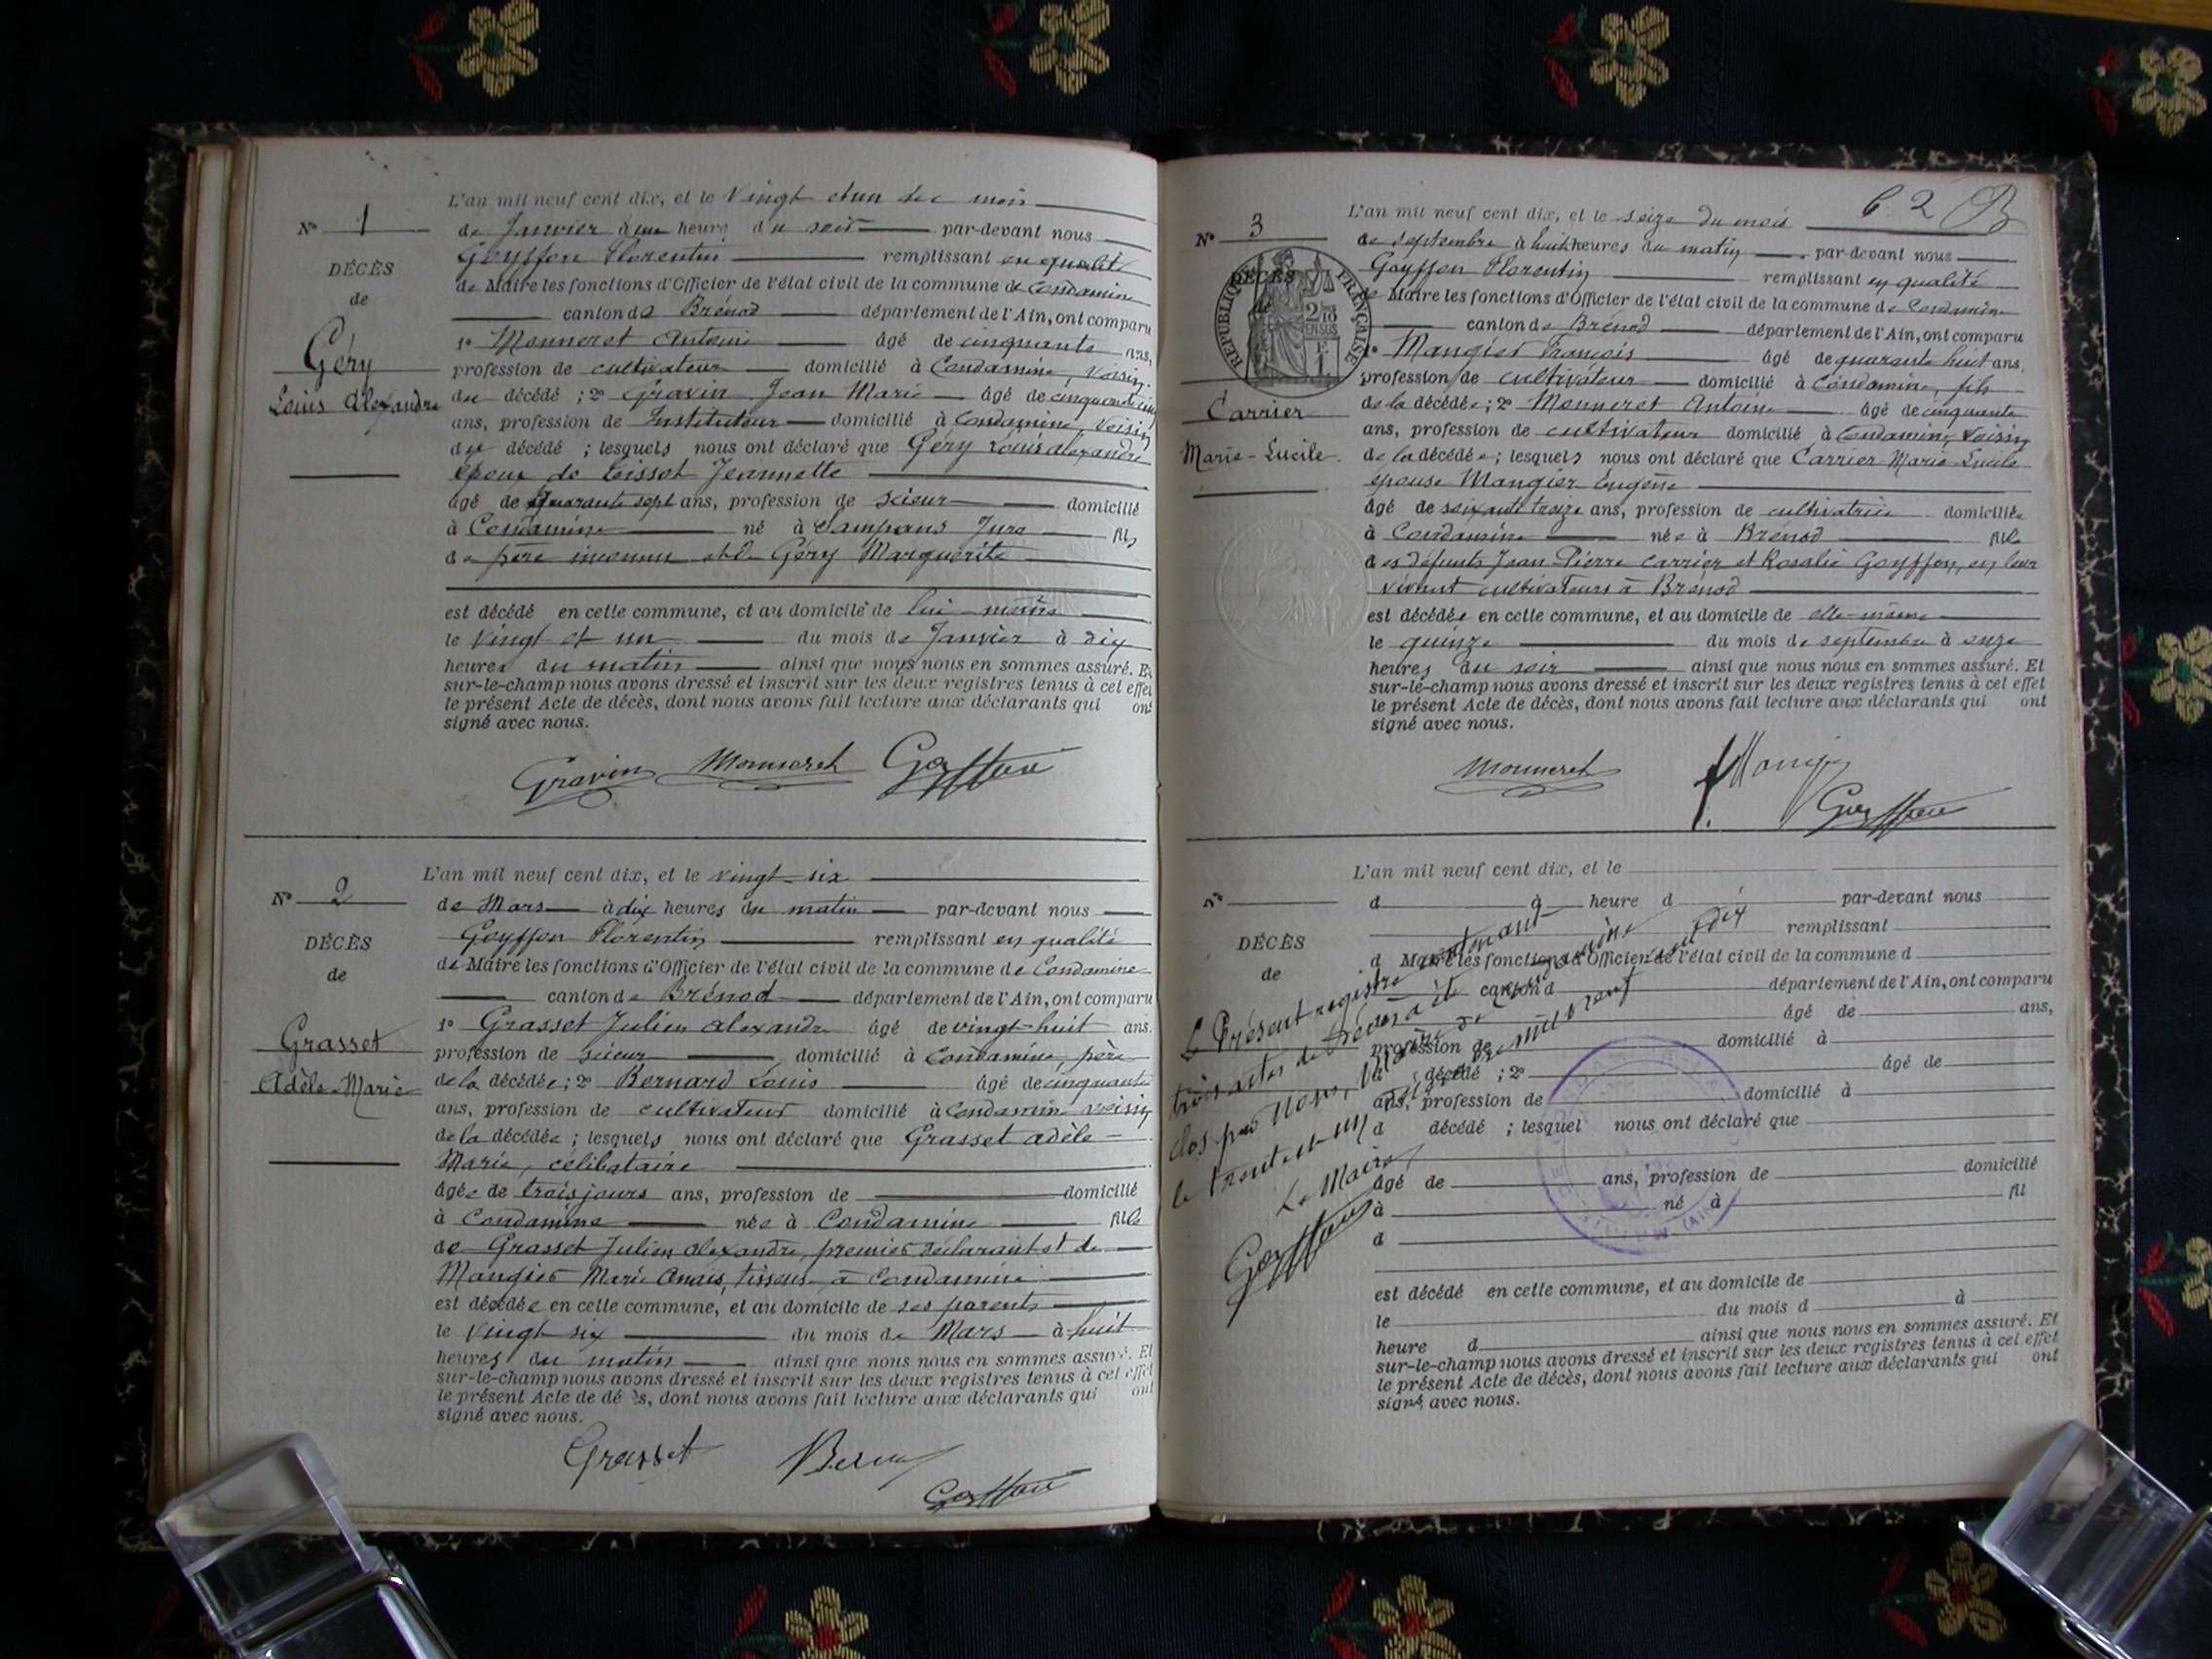 L'an mil neuf cent dix, et le Vingt et un du mois
N° 1
de Janvier à une heure du soir par-devant nous
Goyffon Florentin remplissant en qualité
DÉCÈS
de Maire les fonctions d'Officier de l'état civil de la commune de Condamine
de
canton de Brénod département de l'Ain, ont comparu
1° Monneret Antoine âgé de cinquante ans,
Géry
profession de cultivateur domicilié à Condamine, voisin
Louis Alexandre
du décédé ; 2° Gravin Jean Marie âgé de cinquante
ans, profession de Instituteur domicilié à Condamine, Voisin
du décédé ; lesquels nous ont déclaré que Géry Louis Alexandre
époux de Jeannette
âgé de quarante sept ans, profession de scieur domicilié
à Condamine né à Sampans Jura fils
de père inconnu et de Géry Marguerite
est décédé en cette commune, et au domicile de lui-même
le vingt et un du mois de Janvier à dix
heures du matin ainsi que nous nous en sommes assuré. Et
sur-le-champ nous avons dressé et inscrit sur les deux registres tenus à cet effet
le présent Acte de décès, dont nous avons fait lecture aux déclarants qui ont
signé avec nous.
Gravin Monneret Goyffon
L'an mil neuf cent dix, et le vingt-six
N° 2
de Mars à dix heures du matin par-devant nous
Goyffon Florentin remplissant en qualité
DÉCÈS
de Maire les fonctions d'Officier de l'état civil de la commune de Condamine
de
canton de Brénod département de l'Ain, ont comparu
1° Grasset Julien Alexandre âgé de vingt-huit ans.
Grasset
profession de scieur domicilié à Condamine, père
Adèle-Marie
de la décédée ; 2° Bernard Louis âgé de cinquante
ans, profession de cultivateur domicilié à Condamine voisin
de la décédée ; lesquels nous ont déclaré que Grasset Adèle
Marie, célibataire
âgée de trois jours ans, profession de domicilié
à Condamine née à Condamine fille
de Grasset Julien Alexandre, premier déclarant et de
Mangier Marie Anaïs, tisseuse à Condamine
est décédée en cette commune, et au domicile de ses parents
le vingt six du mois de Mars à huit
heures du matin ainsi que nous nous en sommes assuré. Et
sur-le-champ nous avons dressé et inscrit sur les deux registres tenus à cet effet
le présent Acte de décès, dont nous avons fait lecture aux déclarants qui ont
signé avec nous.
Grasset Goyffon
6 2
L'an mil neuf cent dix, et le seize du mois
N° 3
de septembre à huit heures du matin par-devant nous
Goyffon Florentin remplissant en qualité
DÉCÈS
RÉPUBLIQUE FRANÇAISE
de Maire les fonctions d'Officier de l'état civil de la commune de Condamine
canton de Brénod département de l'Ain, ont comparu
1° Mangier François âgé de quarante huit ans.
profession de cultivateur domicilié à Condamine, fils
Carrier
de la décédée ; 2° Monneret Antoine âgé de cinquante
ans, profession de cultivateur domicilié à Condamine, Voisin
Marie-Lucile
de la décédée ; lesquels nous ont déclaré que Carrier Marie-Lucile
épouse Mangier Eugène
âgé de soixante treize ans, profession de cultivatrice domiciliée
à Condamine née à Brénod fille
des défunts Jean Pierre Carrier et Rosalie Goyffon, en leur
vivant cultivateurs à Brénod
est décédée en cette commune, et au domicile de elle-même
le quinze du mois de septembre à onze
heures du soir ainsi que nous nous en sommes assuré. Et
sur-le-champ nous avons dressé et inscrit sur les deux registres tenus à cet effet
le présent Acte de décès, dont nous avons fait lecture aux déclarants qui ont
signé avec nous.
Monneret Goyffon
L'an mil neuf cent dix, et le
N°
d à heure d par-devant nous
remplissant
DÉCÈS
d Maire les fonctions d'Officier de l'état civil de la commune d
de
canton d département de l'Ain, ont comparu
âgé de ans,
profession de domicilié à
d décédé ; 2° âgé de
ans, profession de domicilié à
d décédé ; lesquel nous ont déclaré que
âgé de ans, profession de domicilié
à né à fil
d
est décédé en cette commune, et au domicile de
le du mois d à
heure d ainsi que nous nous en sommes assuré. Et
sur-le-champ nous avons dressé et inscrit sur les deux registres tenus à cet effet
le présent Acte de décès, dont nous avons fait lecture aux déclarants qui ont
signé avec nous.
Le Présent registre contenant
trois actes de décès a été
clos par nous, Maire de Condamine
le trente et un décembre mil neuf cent dix
Le Maire
Goyffon